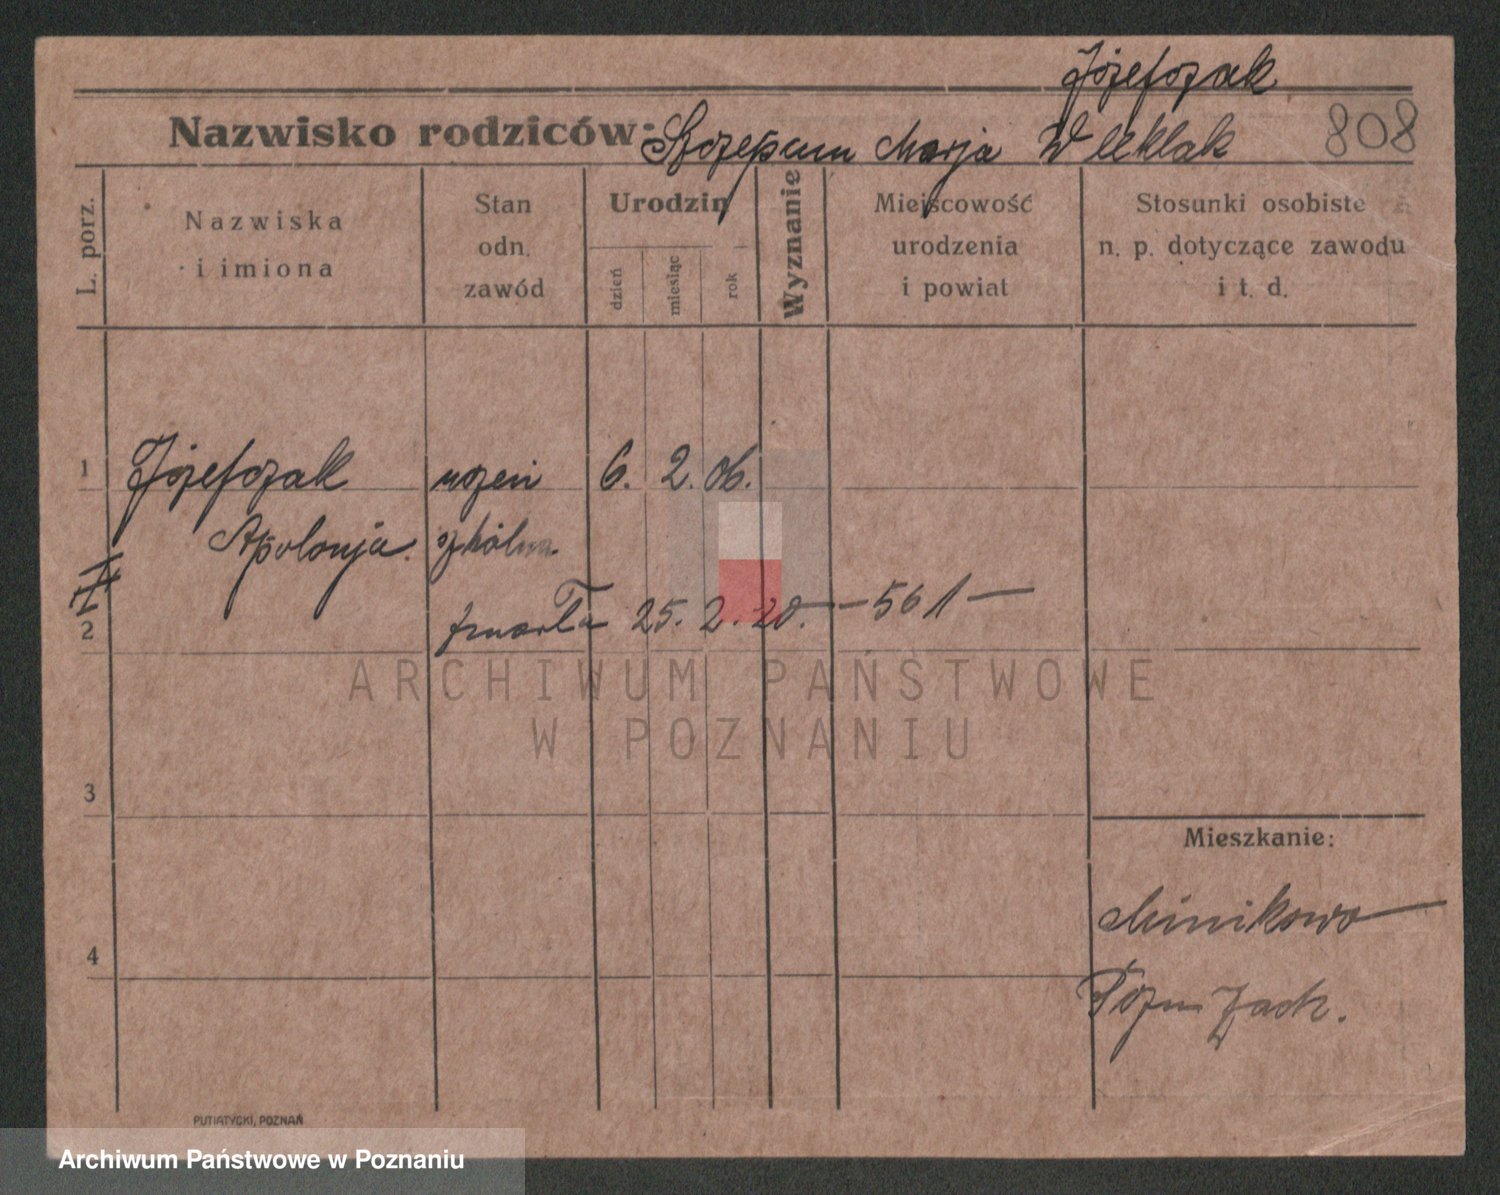 Józefczak
Nazwisko rodziców: Szczepan Marja Wleklak 808
L. porz.
Nazwiska
i imiona
Stan
odn.
zawód
Urodzin
dzień
miesiąc
rok
Wyznanie
Miejscowość
urodzenia
i powiat
Stosunki osobiste
n. p. dotyczące zawodu
i t. d.
1 Józefczak uczeń 6. 2. 06.
Apolonja. szkólna
zmarła 25. 2. 20. — 561 —
2
3
4
Mieszkanie:
Minikowo
Pozn Zach.
PUTIATYCKI, POZNAŃ
ARCHIWUM PAŃSTWOWE
W POZNANIU
Archiwum Państwowe w Poznaniu